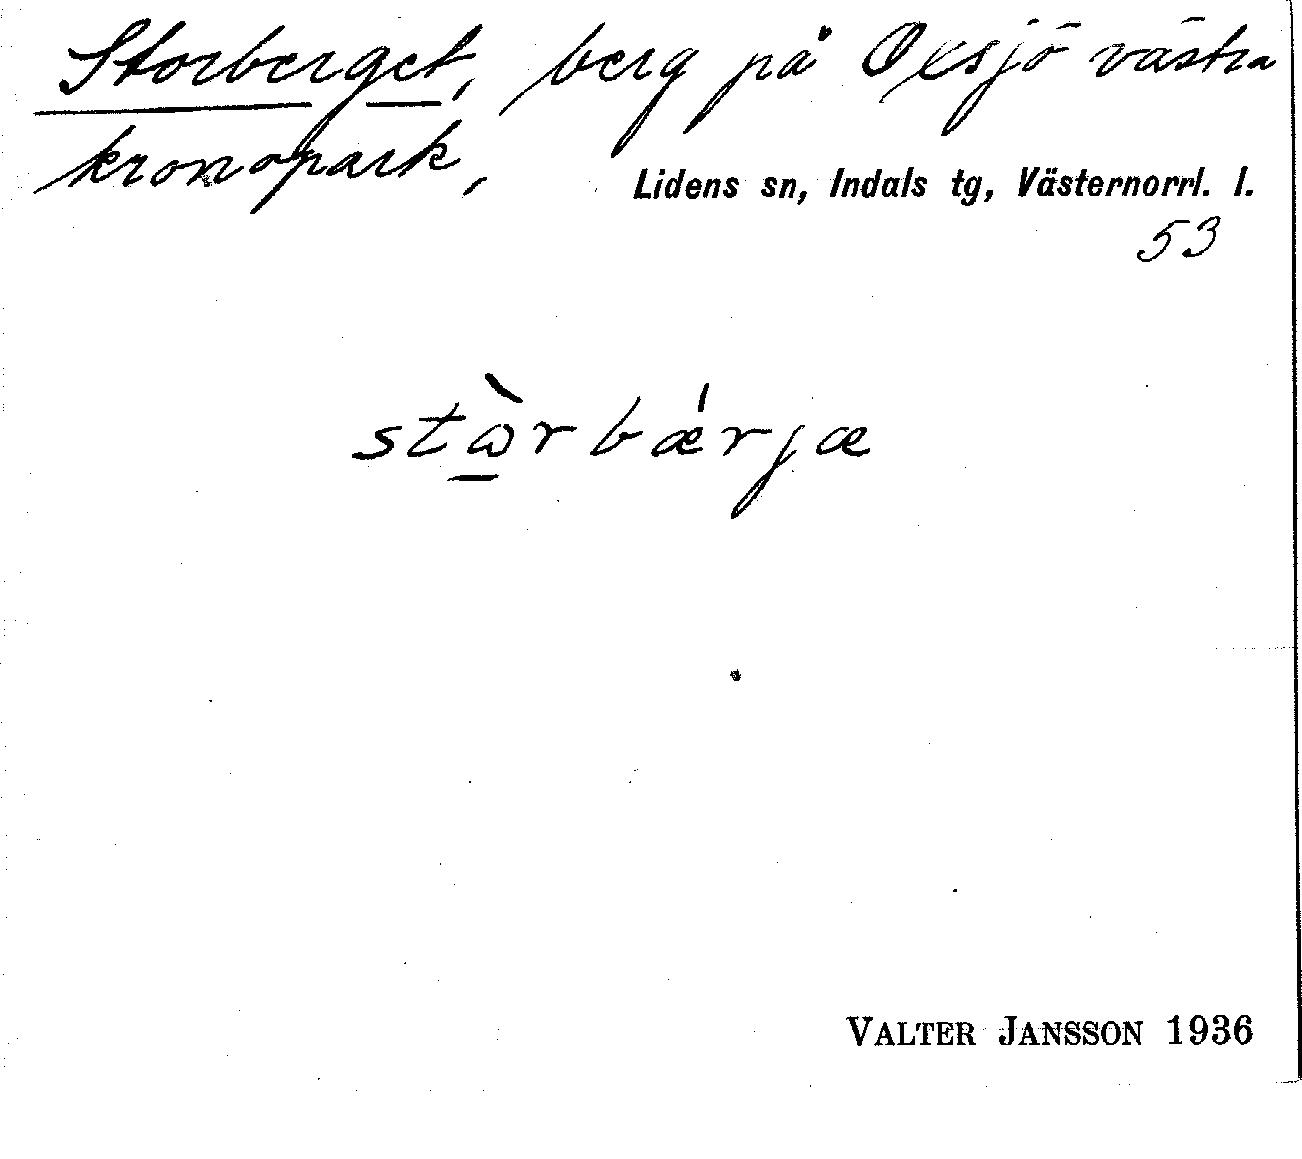 Storberget, berg på Oxsjö västra
kronopark,
Lidens sn, Indals tg, Västernorrl. l.
53
stὼ̱rbǽrjæ
VALTER JANSSON 1936